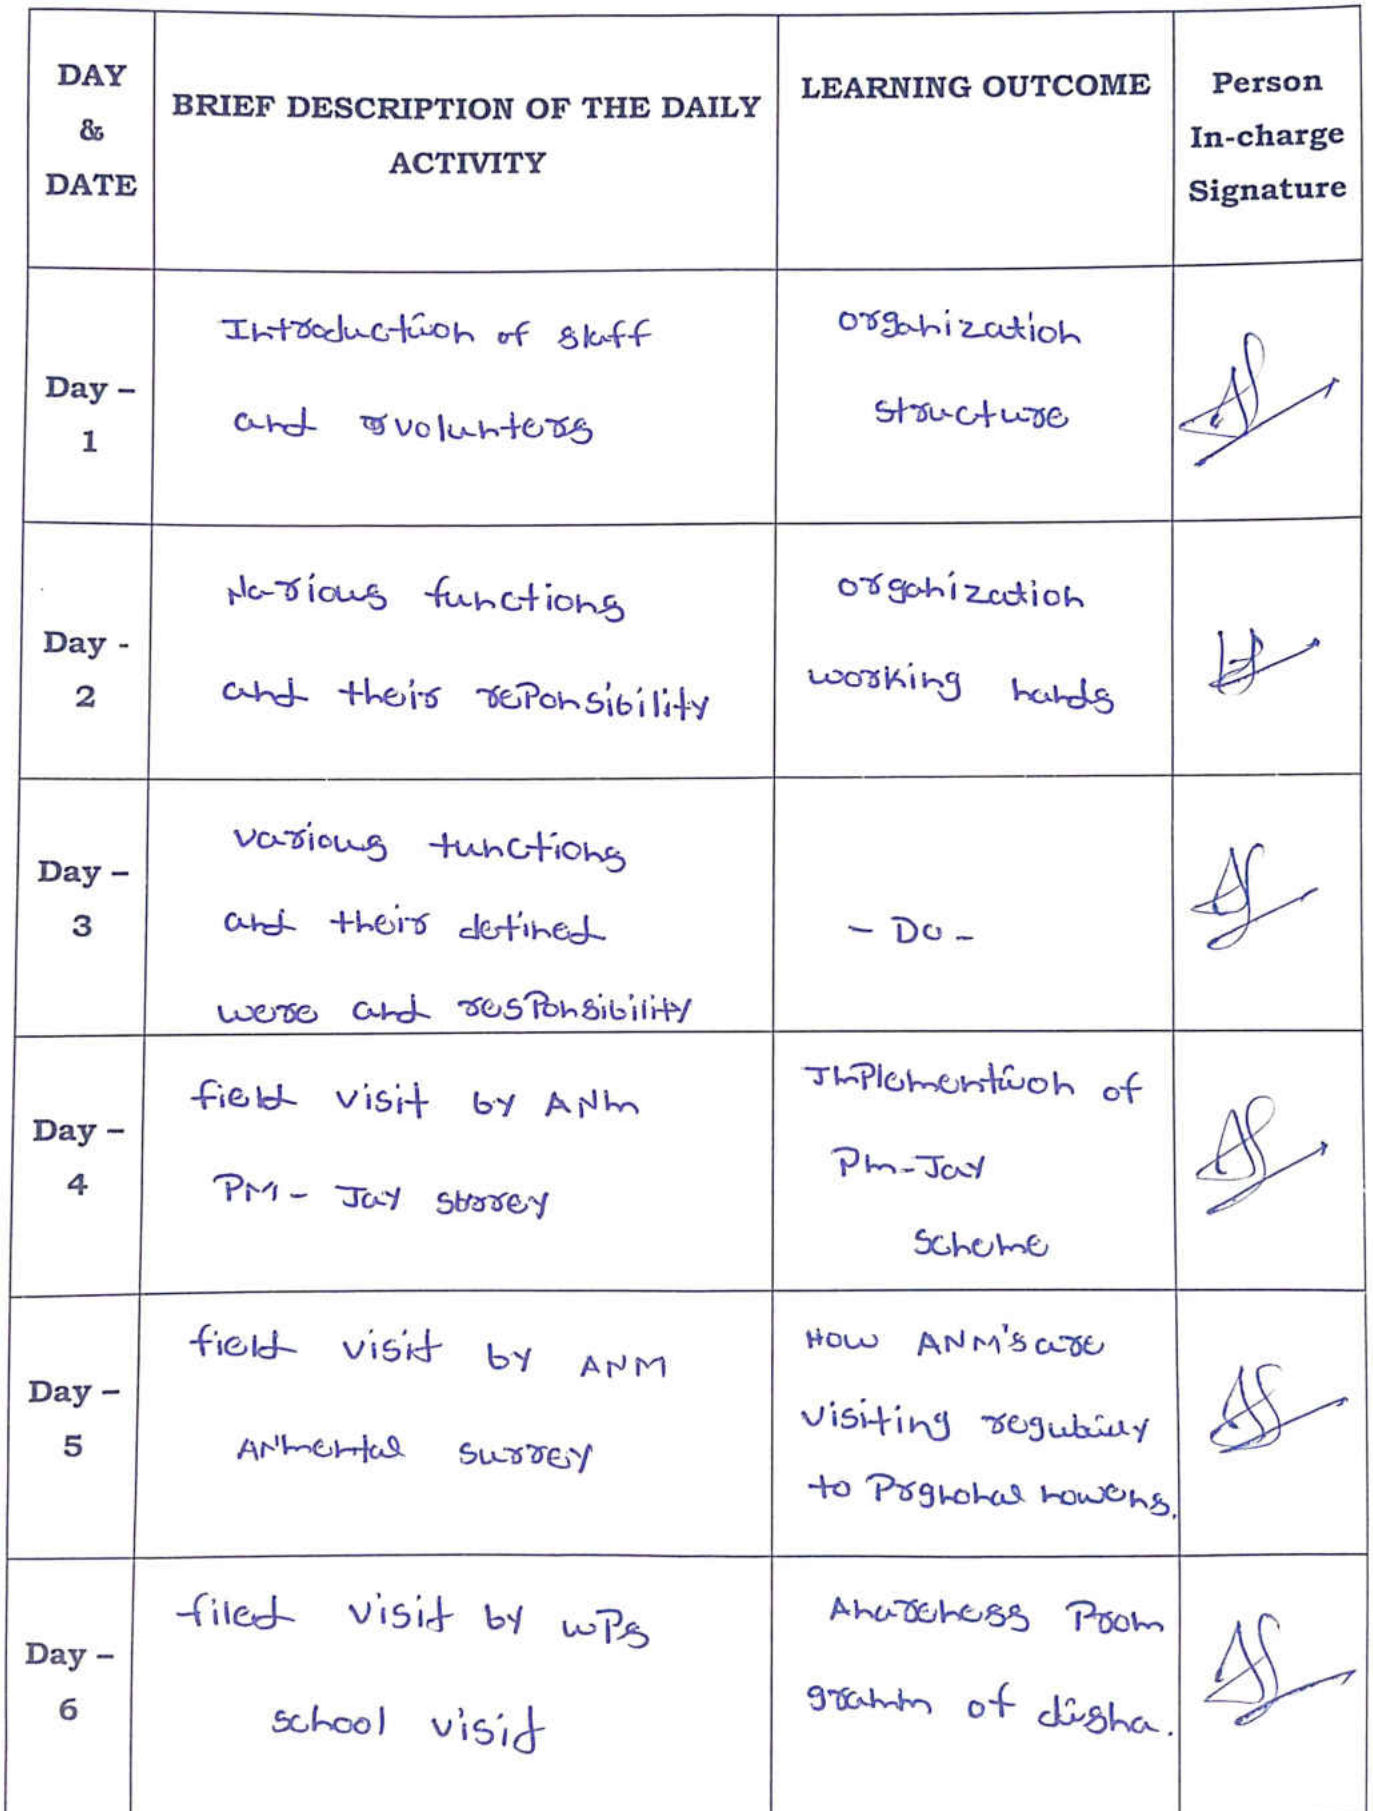 DAY & DATE
BRIEF DESCRIPTION OF THE DAILY
ACTIVITY
LEARNING OUTCOME
Person
In-charge
Signature
Day –
1
Introduction of staff
and volunters
organization
structure
Day -
2
Various functions
and their reponsibility
organization
working hands
Day –
3
various functions
and their defined
were and responsibility
- Do -
Day –
4
field visit by ANM
PM - Jay surrey
Implemention of
PM-Jay
Scheme
Day –
5
field visit by ANM
surrey
HOW ANM's are
visiting
to
Day –
6
filed visit by WPs
school visit
of disha.